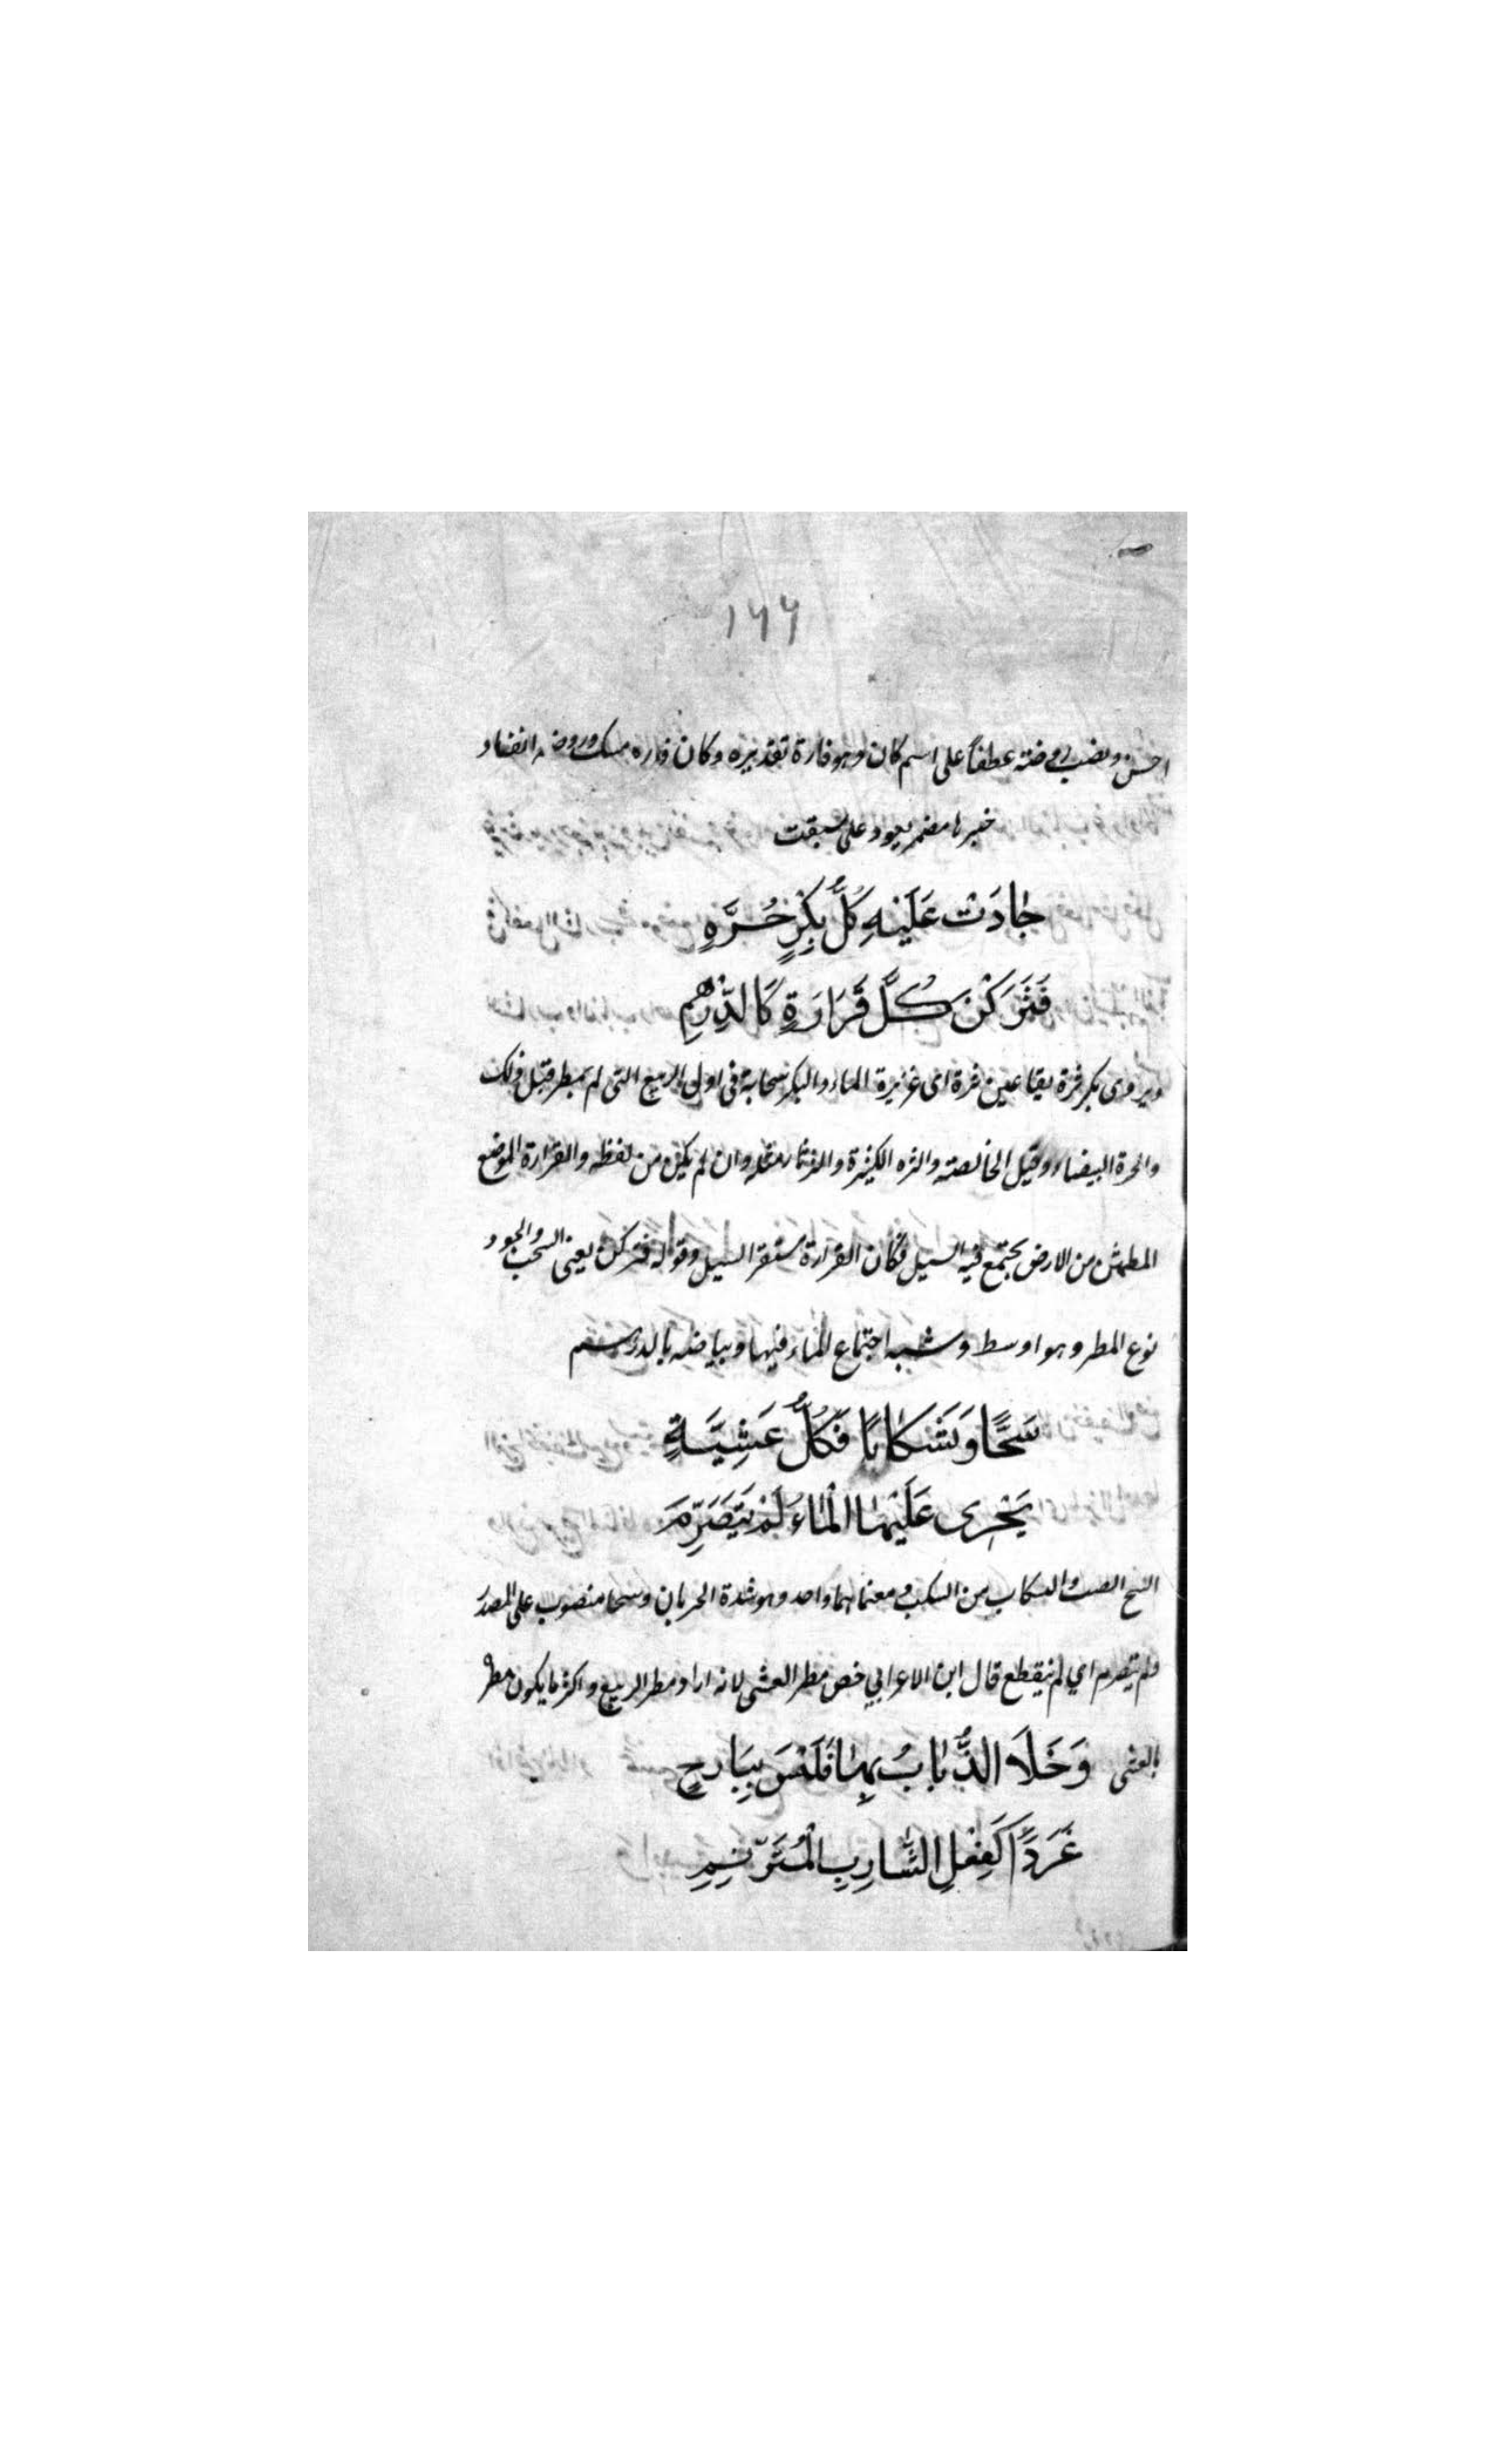 ١٦٦
احسن ونصب روضة عطفاً على اسم كان وهو فارة تقديره وكان فاره مسك وروضه انفنا و
خبرها مضمر يعود على سبقت
جٰادَتْ عَلَيْهِ كُلُّ بِكْرٍ حُرَّهٍ
فَتَرَكْنَ كُلَّ قَرَارَةٍ كَالدِّرْهَمِ
ويروى بكر ثرة يقا عين ثرة اى غزيرة الماء والبكر سحابة فى اول الربيع التى لم يمطر قبل ذلك
والحرة البيضاء وقيل الخالصته والثره الكثيرة والثرثار مثله وان لم يكن من لفظه والقرارة الموضع
المطمئن من الارض يجتمع فيه السيل فكان القرارة مستقر السيل وقوله فتركن يعنى السحب والجود
نوع المطر وهو اوسط وشبه اجتماع الماء فيها وبياضه بالدرهم
سَحًّا وَتَسْكٰابًا فَكُلُّ عَشِيَّةٍ
يَجْرِى عَلَيْهٰا الْمٰاءُ لَمْ يَتَصَرَّمَ
السح الصب والتسكاب من السكب ومعناهما واحد وهو شدة الجريان وسحا منصوب على المصدر
ولم يتصرم اي لم ينقطع قال ابن الاعرابي خص مطر العشى لانه اراد مطر الربيع واكثر ما يكون مطره
بالعشى وَخَلَا الذُّبٰابُ بِهٰا فَلَيْسَ بِبَارِحٍ
غَرَدًا كَفِعْلِ الشَّارِبِ الْمُتَرَنِّمِ